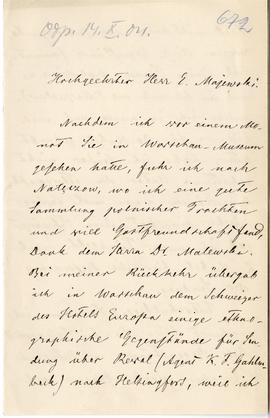 Odp. 14.X.01.
672
Hochgeehrter Herr E. Majewski.
Nachdem ich vor einem Mo-
nat Sie in Warschau-Museum
gesehen hatte, fuhr ich nach
Nałęczow, wo ich eine gute
Sammlung polnischer Trachten
und viel Gastfreundschaft fand,
Dank dem Herrn Dr. Malewski.
Bei meiner Rückkehr übergab
ich in Warschau dem Schweizer
des Hotels Europa einige ethno-
graphische Gegenstände für Sen-
dung über Reval (Agent K. F. Gahln-
beck) nach Helsingfors, weil ich